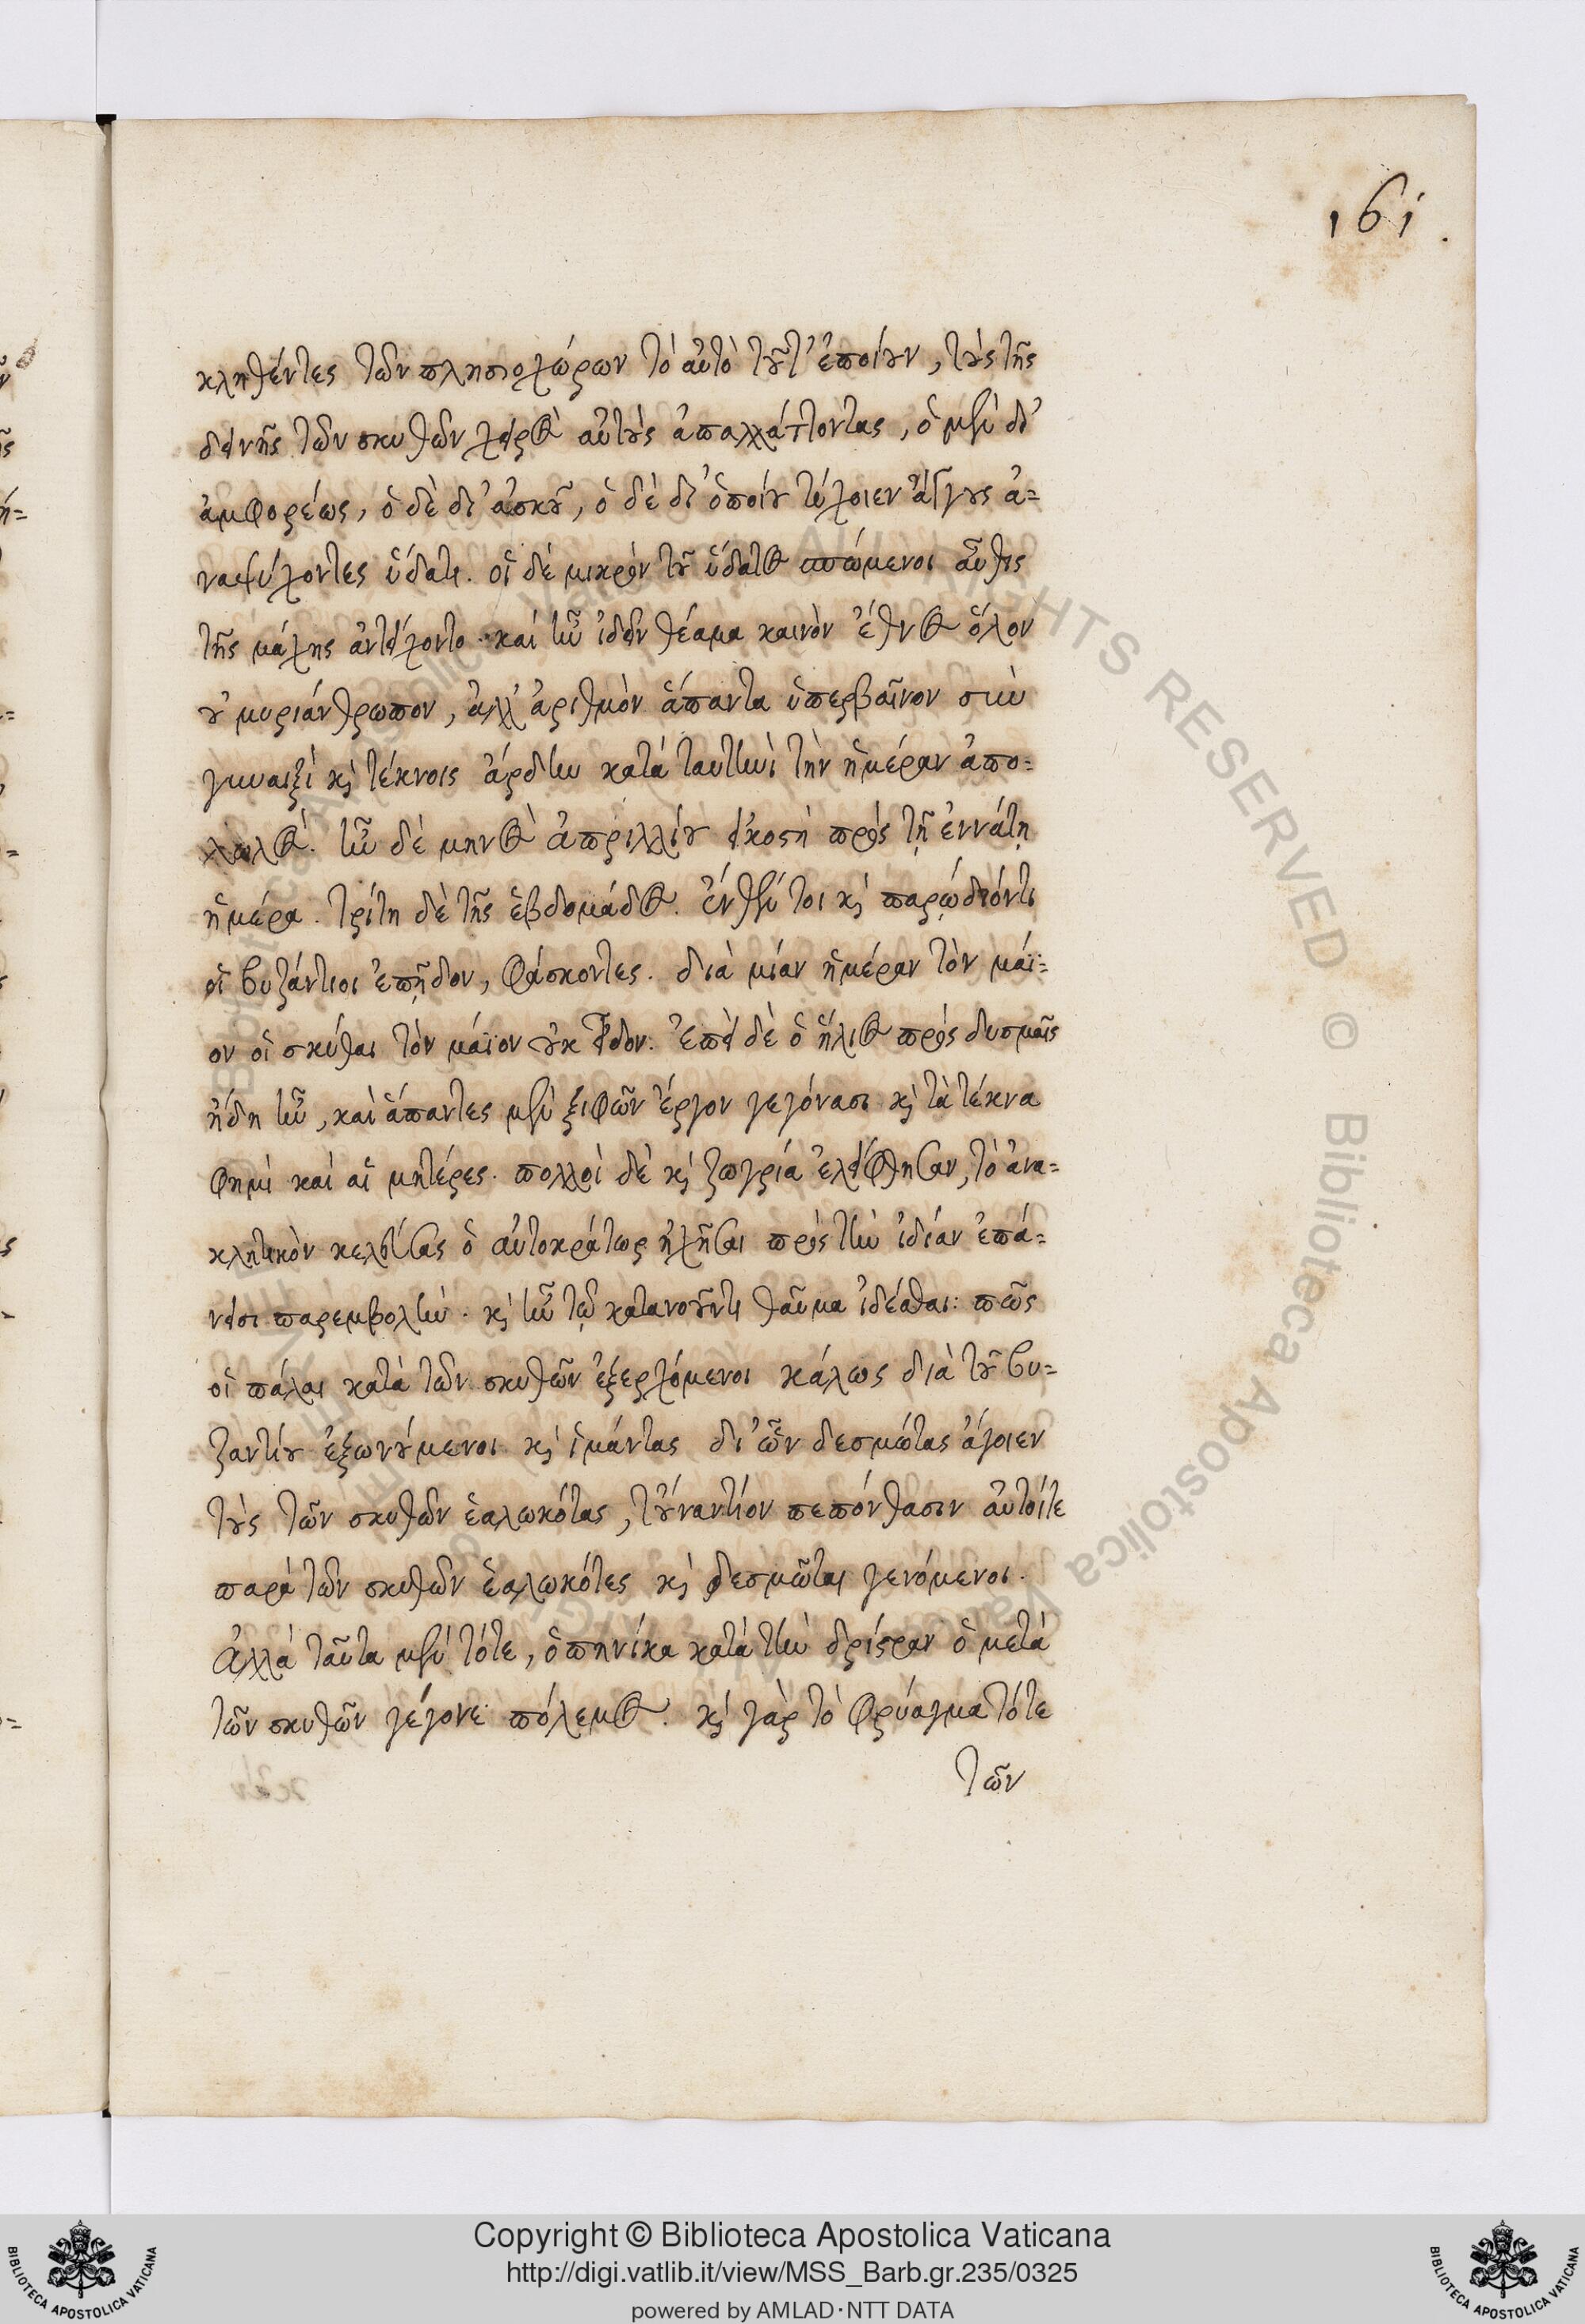 161.
κληθέντες τῶν πλησιοχώρων τὸ αὐτὸ τοῦτ' ἐποίουν, τοὺς τῆς
δεινῆς τῶν σκυθῶν χειρὸς αὐτοὺς ἀπαλλάττοντας, ὁ μὲν δι'
ἀμφορέως, ὁ δὲ δι' ἀσκοῦ, ὁ δὲ δι' ὁποίου τύχοιεν ἄγγους ἀ=
ναψύχοντες ὕδατι. οἱ δὲ μικρὸν τοῦ ὕδατος σπώμενοι αὖθις
τῆς μάχης ἀντείχοντο. καὶ ἦν ἰδεῖν θέαμα καινὸν ἔθνος ὅλον
οὐ μυριάνθρωπον, ἀλλ' ἀριθμὸν ἅπαντα ὑπερβαῖνον σὺν
γυναιξὶ καὶ τέκνοις ἄρδην κατὰ ταυτηνὶ τὴν ἡμέραν ἀπο=
λωλός. ἦν δὲ μηνὸς ἀπριλλίου εἰκοστὴ πρὸς τῇ ἐννάτῃ
ἡμέρα. τρίτη δὲ τῆς ἑβδομάδος. ἐνθέν τοι καὶ παρῳδιόν τι
οἱ βυζάντιοι ἐπῇδον, φάσκοντες. διὰ μίαν ἡμέραν τὸν μάϊ=
ον οἱ σκύθαι τὸν μάϊον οὐκ εἶδον. ἐπεὶ δὲ ὁ ἥλιος πρὸς δυσμαῖς
ἤδη ἦν, καὶ ἅπαντες μὲν ξιφῶν ἔργον γεγόνασι καὶ τὰ τέκνα
φημὶ καὶ αἱ μητέρες. πολλοὶ δὲ καὶ ζωγρία ἐλείφθησαν, τὸ ἀνα=
κλητικὸν κελεύσας ὁ αὐτοκράτωρ ἠχῆσαι πρὸς τὴν ἰδίαν ἐπά=
νεισι παρεμβολήν. καὶ ἦν τῷ κατανοοῦντι θαῦμα ἰδέσθαι: πῶς
οἱ πάλαι κατὰ τῶν σκυθῶν ἐξερχόμενοι κάλως διὰ τοῦ βυ=
ζαντίου ἐξωνούμενοι καὶ ἱμάντας δι' ὧν δεσμώτας ἄγοιεν
τοὺς τῶν σκυθῶν ἑαλωκότας, τοὐναντίον πεπόνθασιν αὐτοί τε
παρὰ τῶν σκυθῶν ἑαλωκότες καὶ δεσμῶται γενόμενοι.
Ἀλλὰ ταῦτα μὲν τότε, ὁπηνίκα κατὰ τὴν δρίστραν ὁ μετὰ
τῶν σκυθῶν γέγονε πόλεμος. καὶ γὰρ τὸ φρύαγμα τότε
τῶν
ALL RIGHTS RESERVED © Biblioteca Apostolica Vaticana
BIBLIOTECA APOSTOLICA VATICANA
Copyright © Biblioteca Apostolica Vaticana
http://digi.vatlib.it/view/MSS_Barb.gr.235/0325
powered by AMLAD·NTT DATA
BIBLIOTECA APOSTOLICA VATICANA